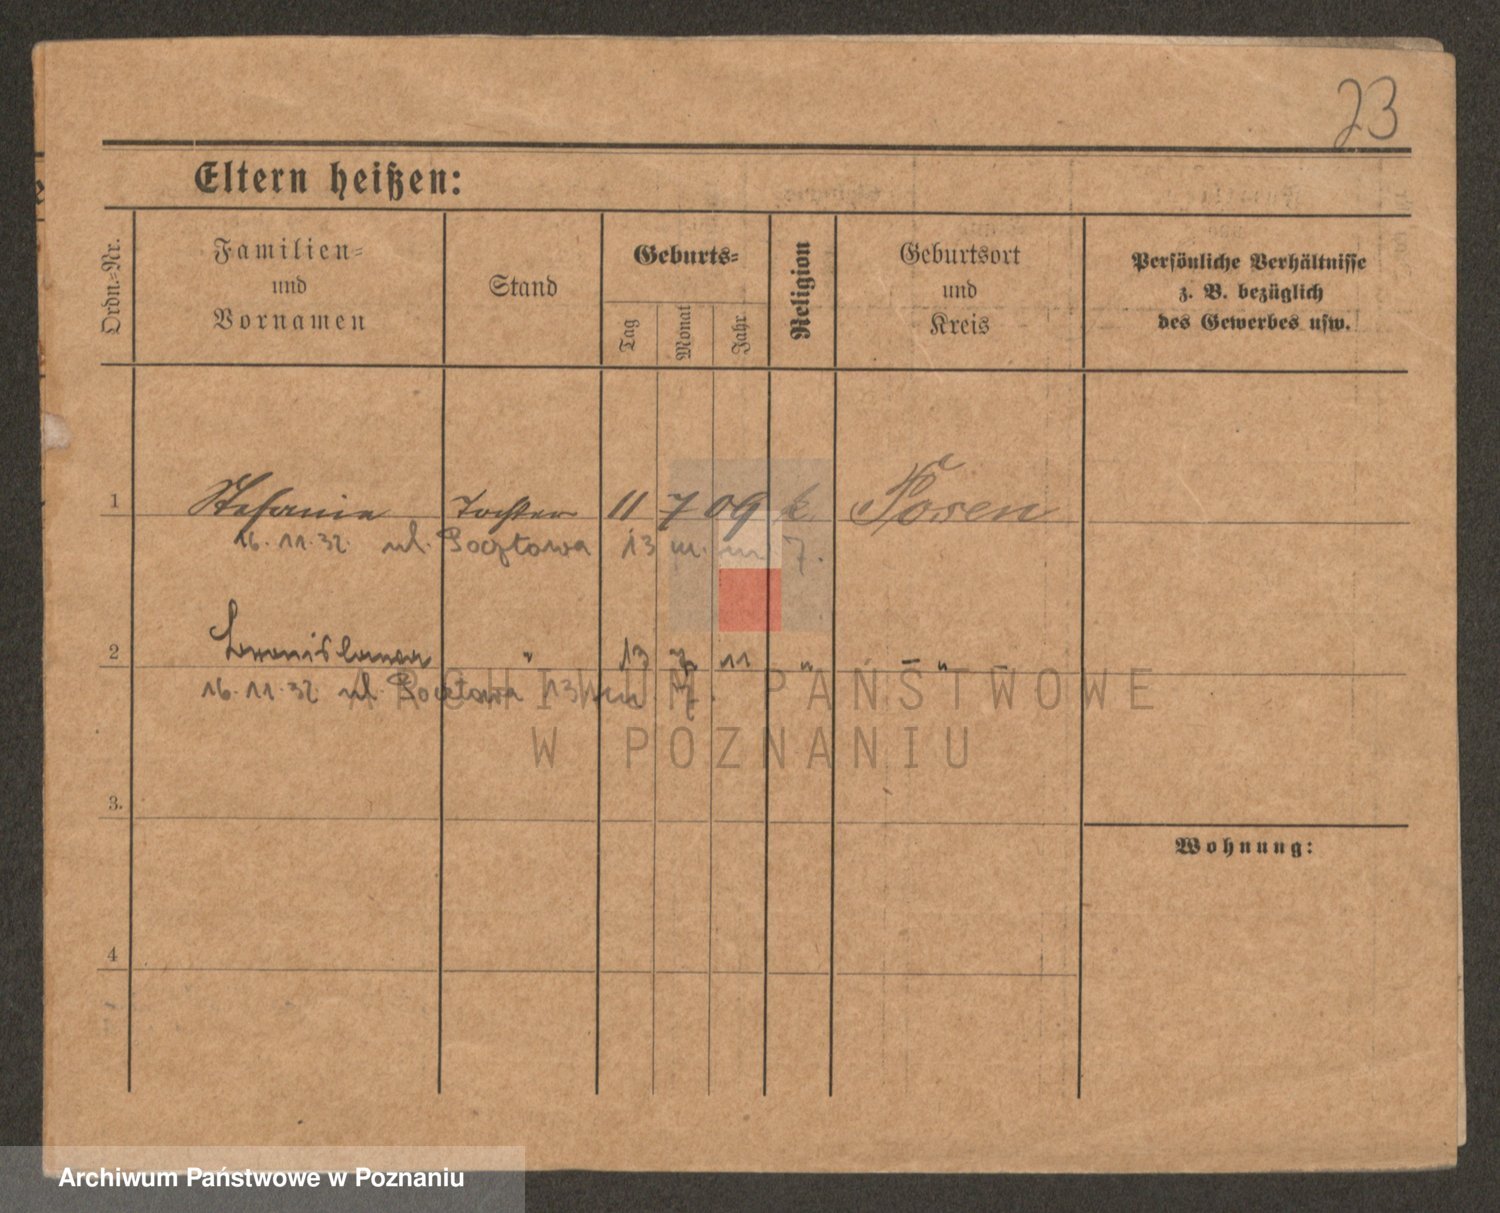 23
Eltern heißen:
Ordn.-Nr.
Familien-
und
Vornamen
Stand
Geburts-
Tag
Monat
Jahr
Religion
Geburtsort
und
Kreis
Persönliche Verhältnisse
z. B. bezüglich
des Gewerbes usw.
1 Stefanie Tochter 11 7 09 k Posen
16.11.32. ul. Pocztowa 13 m. 7.
2 Bronislawa " 13 7 11 " — " —
16.11.32 ul. Pocztowa 13 m 7.
3.
Wohnung:
4
ARCHIWUM PAŃSTWOWE
W POZNANIU
Archiwum Państwowe w Poznaniu